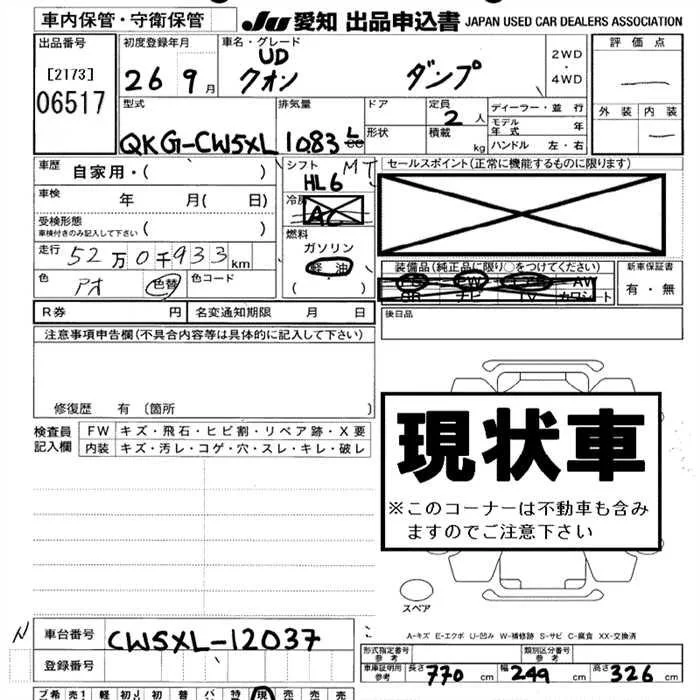 車内保管・守衛保管 JU 愛知 出品申込書 JAPAN USED CAR DEALERS ASSOCIATION
出品番号 初度登録年月 車名・グレード 評価点
[2173] 06517 26 9月 UD クオン ダンプ 2WD・4WD
外装 内装
型式 排気量 ドア 定員 2人 ディーラー・並行
QKG-CW5XL 1083 形状 積載 kg モデル年式 年
ハンドル 左・右
車歴 自家用・( ) シフト MT セールスポイント(正常に機能するものに限ります)
HL6
車検 年 月( 日) 冷房 AC
受検形態 車検付きのみ記入して下さい ( ) 燃料
ガソリン
走行 52万0千933km 軽油 装備品(純正品に限り○をつけてください) 新車保証書
色 アオ 色替 色コード ( ) PS PW AW 有・無
ナビ TV カワシート
R券 円 名変通知期限 月 日 後日品
注意事項申告欄(不具合内容等は具体的に記入して下さい)
修復歴 有 〔箇所 〕
検査員記入欄 FW キズ・飛石・ヒビ割・リペア跡・X要
内装 キズ・汚レ・コゲ・穴・スレ・キレ・破レ
現状車
※このコーナーは不動車も含み
ますのでご注意下さい
スペア
N 車台番号 CW5XL-12037 A-キズ E-エクボ U-凹み W-補修跡 S-サビ C-腐食 XX-交換済
登録番号 形式指定番号 参考 類別区分番号 参考
車庫証明用 参考 長さ 770 cm 幅 249 cm 高さ 326 cm